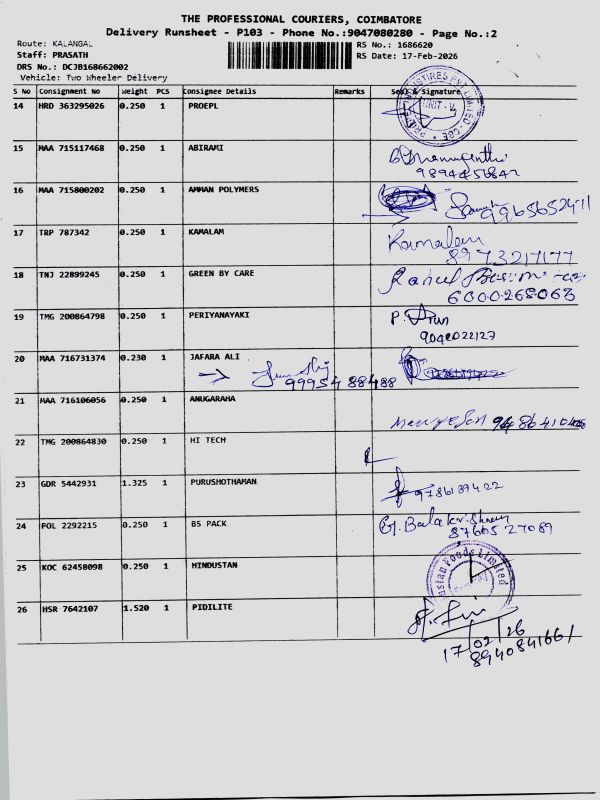 THE PROFESSIONAL COURIERS, COIMBATORE
Delivery Runsheet - P103 - Phone No.:9047080280 - Page No.:2
Route: KALANGAL
RS No.: 1686620
Staff: PRASATH
RS Date: 17-Feb-2026
DRS No.: DCJB168662002
Vehicle: Two Wheeler Delivery
S No Consignment No Weight PCS Consignee Details Remarks Seal & Signature
14 HRD 363295026 0.250 1 PROEPL
UNIT - II
15 MAA 715117468 0.250 1 ABIRAMI
9894456842
16 MAA 715800202 0.250 1 AMMAN POLYMERS
9965652411
17 TRP 787342 0.250 1 KAMALAM Kamalam
8973217177
18 TNJ 22899245 0.250 1 GREEN BY CARE Rahul
6000268063
19 TMG 200864798 0.250 1 PERIYANAYAKI P. Arun
9040022127
20 MAA 716731374 0.230 1 JAFARA ALI
9995488488
21 MAA 716106056 0.250 1 ANUGARAHA
22 TMG 200864830 0.250 1 HI TECH
23 GDR 5442931 1.325 1 PURUSHOTHAMAN 9786189422
24 POL 2292215 0.250 1 BS PACK G. Balakrishnan
8760527089
25 KOC 62458098 0.250 1 HINDUSTAN
Foods Limited
26 HSR 7642107 1.520 1 PIDILITE
17/02/26
8940841661